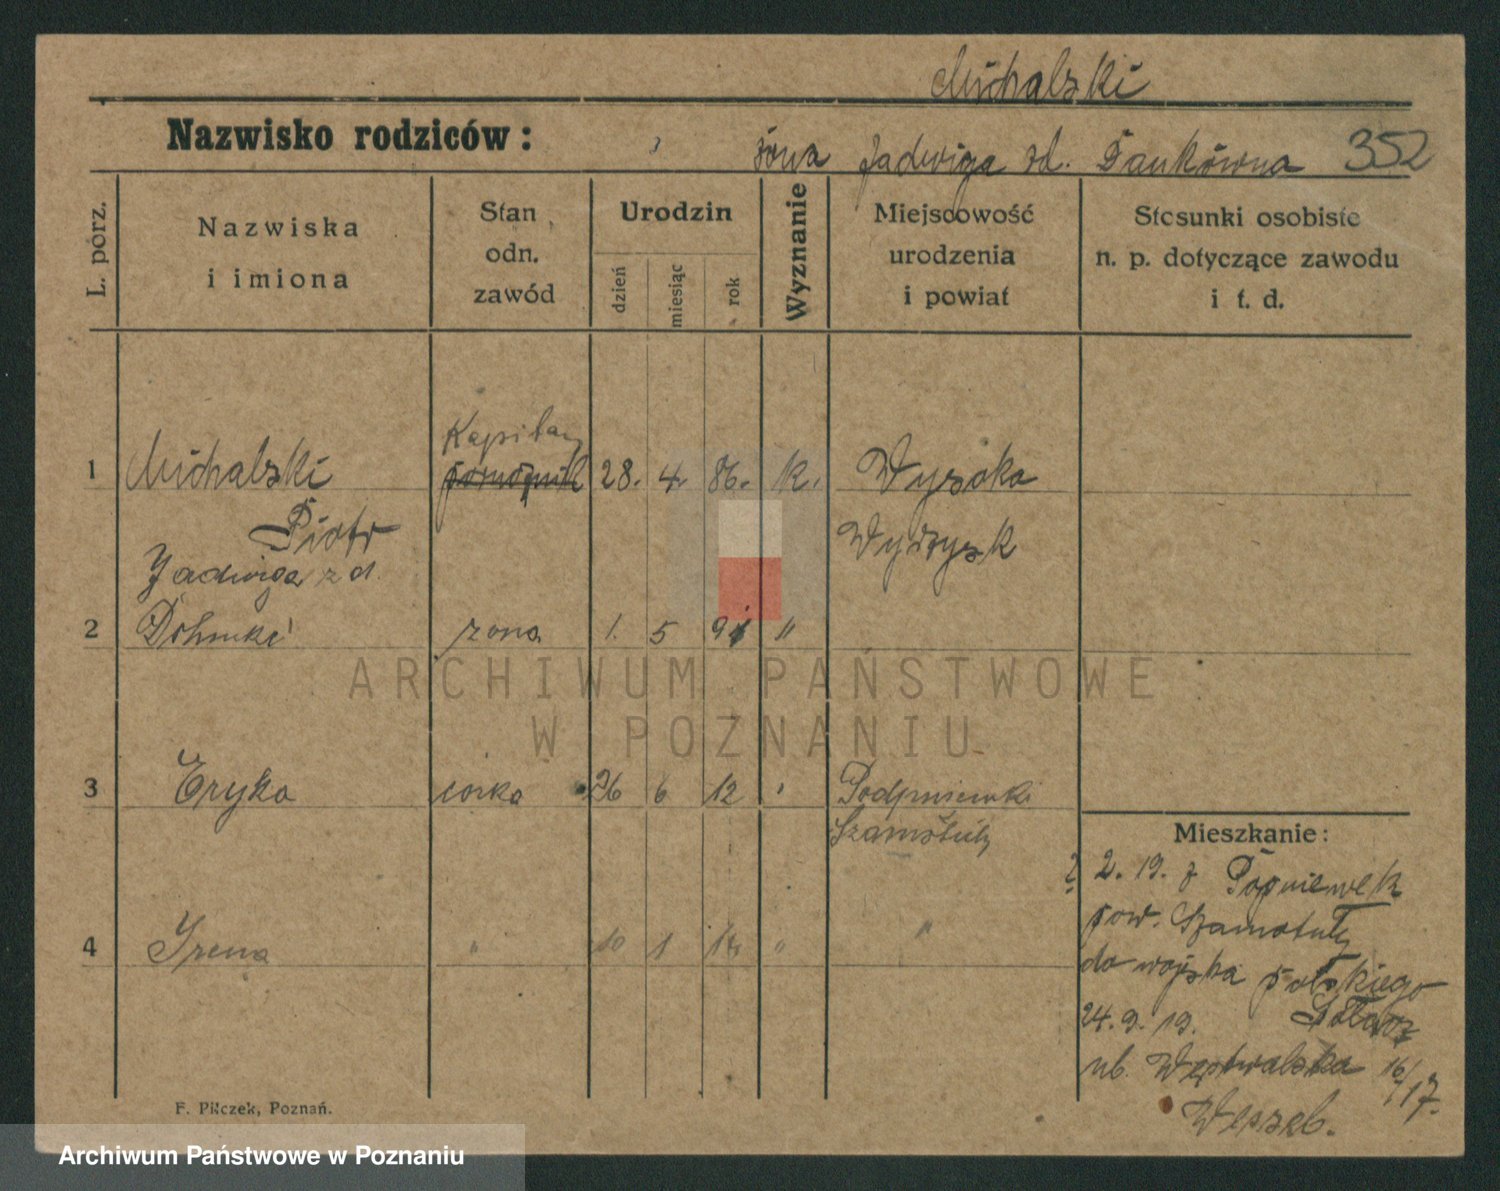 Michalski
Nazwisko rodziców:
żona Jadwiga zd. 352
L. porz.
Nazwiska
i imiona
Stan
odn.
zawód
Urodzin
dzień
miesiąc
rok
Wyznanie
Miejscowość
urodzenia
i powiat
Stosunki osobiste
n. p. dotyczące zawodu
i t. d.
Kapitan
1 Michalski porucznik 28. 4. 86. k. Wysoka
Piotr Wyrzysk
Jadwiga z d.
2 żona 1. 5 91 "
ARCHIWUM PAŃSTWOWE
W POZNANIU
3 Eryka córka 26 6 12 " Podpniewki
Szamotuły
Mieszkanie:
? 2. 19. z
pow. Szamotuły
4 Irena " 10 1 14 " "
do wojska polskiego
24. 9. 19. Sołacz
ul. 16/17.
F. Pilczek, Poznań.
Archiwum Państwowe w Poznaniu